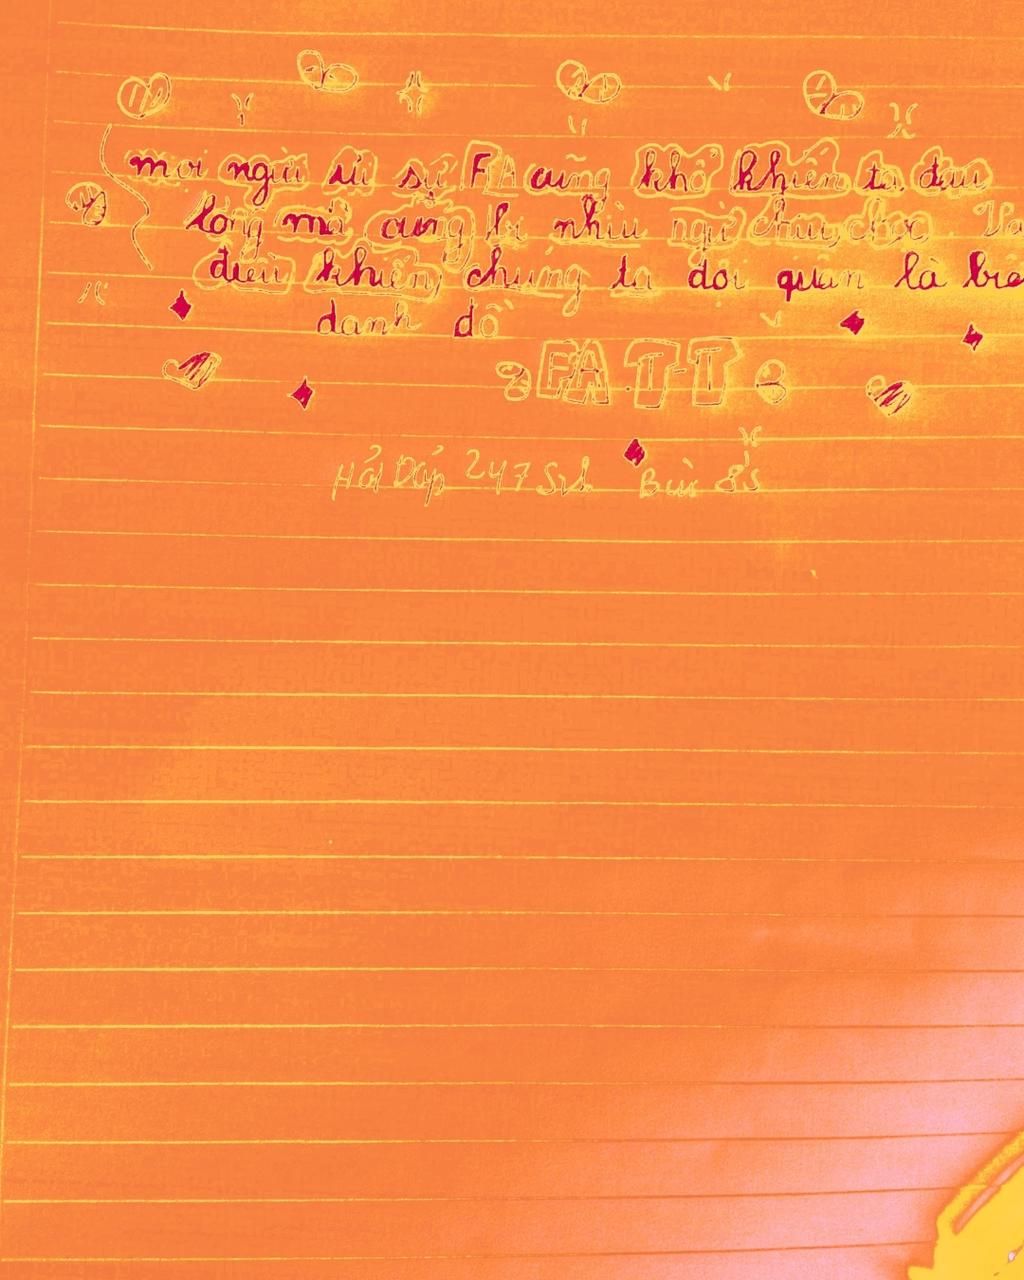 mọi người ơi sự FA cũng khổ khiến ta đau
lòng mà cũng bị nhiu ngừ chiu chọc. Và
điều khiến chúng ta dối quân là biê
danh đồ
FA T-T
Hỏi Đáp 247 Srd Bùi 8s